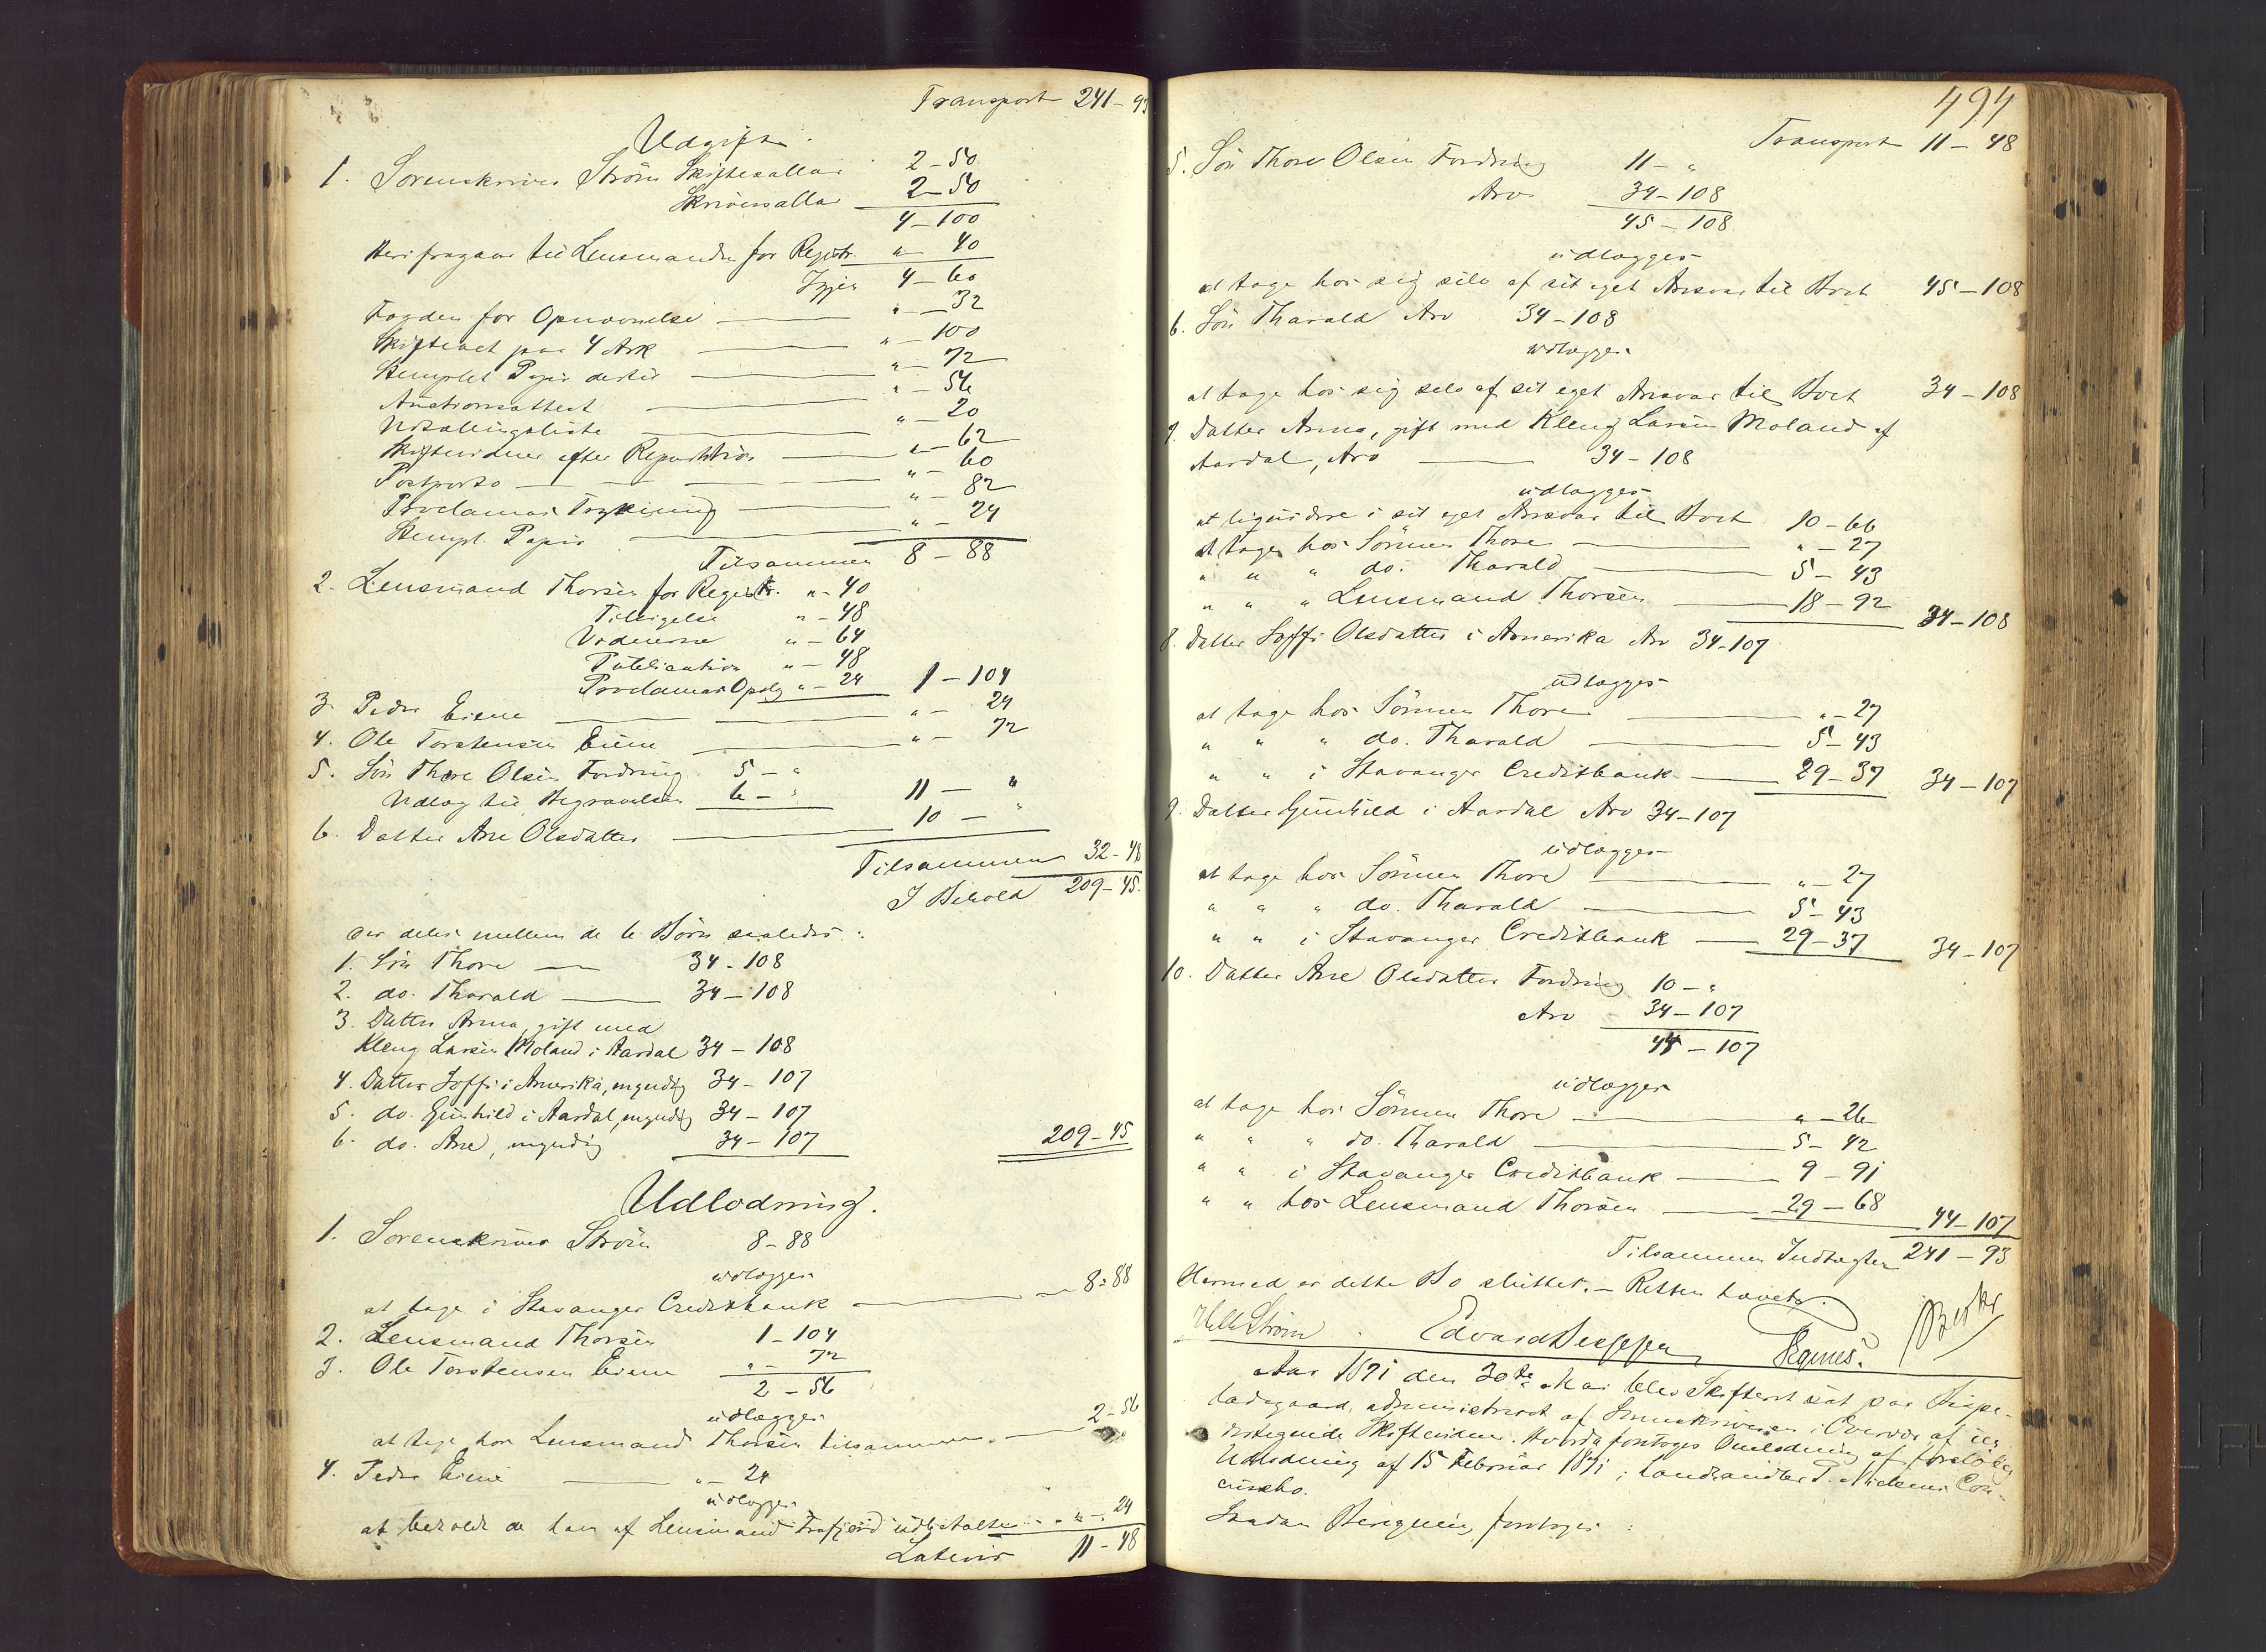 Transport 241-93
Udgift.
1. Sorenskriver Strøm Skiftesallar 2-50
Skriversallar 2-50
4-100
Herifragaar til Lensmanden for Registr. " 40
Igjen 4-60
Fogden for Opnævnelse " - 32
Skiftebret paa 4 Ark " - 100
Stemplet Papir dertil " - 72
Auctionsattest " - 56
Udtællingsliste " - 20
Skiftevidner efter Repartition " - 62
Postporto " - 60
Proclamas Trykning " - 82
Stempl. Papir " - 24
Tilsammen 8-88
2. Lensmand Thorsen for Registr. " - 40
Tilsigelse " - 48
Vidnerne " - 64
Publication " - 48
Proclamas Opslg " - 24 1-104
3. Peder Eiene " - 24
4. Ole Torstensen Eiene " - 72
5. Søn Thore Olsen Fordring 5 - "
Udlæg til Begravelsen 6 - " 11 - "
6. Datter Ane Olsdatter 10 - "
Tilsammen 32-48
I Behold 209-45.
der deles mellem de 6 Børn saaledes:
1. Søn Thore 34-108
2. do. Tharald 34-108
3. Datter Anna, gift med
Kleng Larsen Moland i Aardal 34-108
4. Datter Soffi i Amerika, myndig 34-107
5. do. Gunhild i Aardal, myndig 34-107
6. do. Ane, myndig 34-107 209-45
Udlodning.
1. Sorenskriver Strøm 8-88
udlægges
at tage i Stavanger Creditbank 8-88
2. Lensmand Thorsen 1-104
3. Ole Torstensen Eiene " - 72
2-56
udlægges
at tage hos Lensmand Thorsen tilsammen 2-56
4. Peder Eiene " - 24
udlægges
at beholde de ham af Lensmand Frafjord udbetalte " - 24
Lateris 11-48
494
Transport 11-48
5. Søn Thore Olsen Fordring 11 - "
Arv 34-108
45-108
udlægges
at tage hos sig selv af sit eget Ansvar til Boet 45-108
6. Søn Tharald Arv 34-108
udlægges
at tage hos sig selv af sit eget Ansvar til Boet 34-108
7. Datter Anna, gift med Kleng Larsen Moland af
Aardal, Arv 34-108
udlægges
at liquidere i sit eget Ansvar til Boet 10-66
at tage hos Sønnen Thore " - 27
" " " do. Tharald 5-43
" " " Lensmand Thorsen 18-92 34-108
8. Datter Soffi Olsdatter i Amerika Arv 34-107
udlægges
at tage hos Sønnen Thore " - 27
" " " do. Tharald 5-43
" " i Stavanger Creditbank 29-37 34-107
9. Datter Gunhild i Aardal Arv 34-107
udlægges
at tage hos Sønnen Thore " - 27
" " " do. Tharald 5-43
" " i Stavanger Creditbank 29-37 34-107
10. Datter Ane Olsdatter Fordring 10 - "
Arv 34-107
44-107
udlægges
at tage hos Sønnen Thore " - 26
" " " do. Tharald 5-42
" " i Stavanger Creditbank 9-91
" " hos Lensmand Thorsen 29-68 44-107
Tilsammen Indtægten 241-93
Hermed er dette Bo sluttet. - Retten hævet.
Strøm Edvard Jesppen
Aar 1871 den 30te Mai blev Skifteret sat paa Rispe-
ladegaard, administreret af Sorenskriveren i Overvær af un-
dertegnede Skiftevidner. Hvorda foretoges Omlodning af foreløbig
Udlodning af 15 Februar 1871 i Landhandler P. Nielsens Con-
cursbo.
Saadan Beregning foretoges: